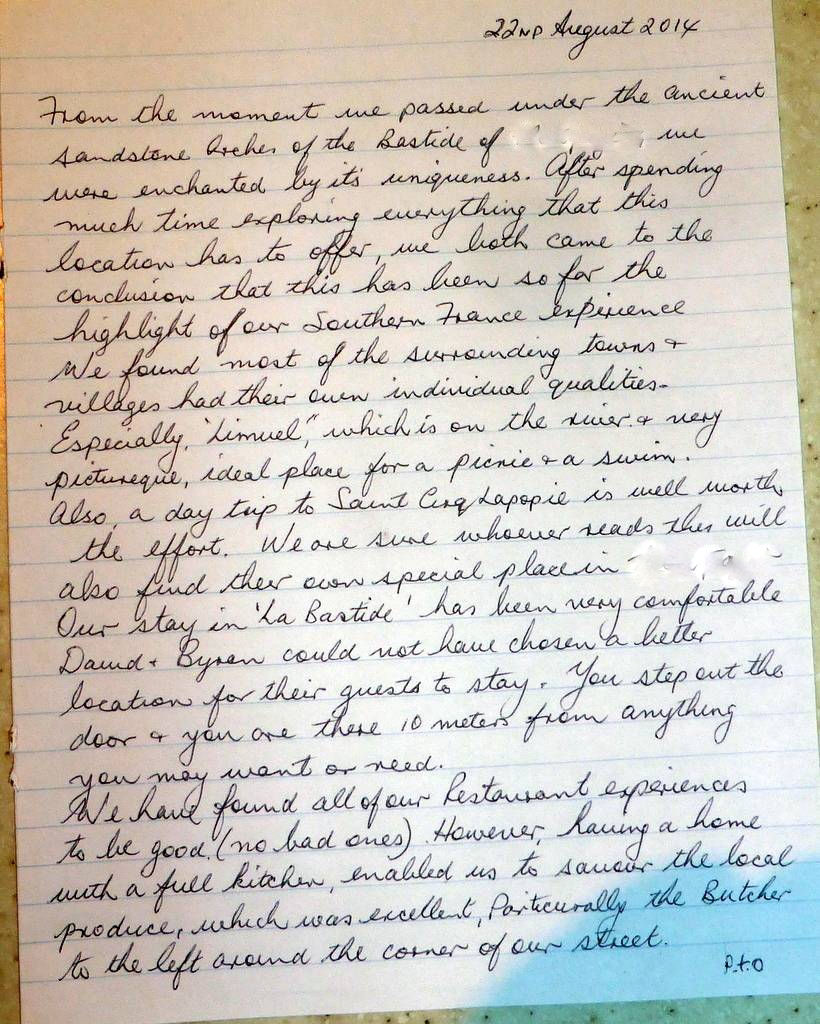 22ND August 2014
From the moment we passed under the ancient
sandstone Arches of the Bastide of we
were enchanted by it's uniqueness. After spending
much time exploring everything that this
location has to offer, we both came to the
conclusion that this has been so far the
highlight of our Southern France experience
We found most of the surrounding towns +
villages had their own individual qualities.
Especially, "Limuel", which is on the river + very
pictureque, ideal place for a picnic + a swim.
Also, a day trip to Saint Cirq Lapopie is well worth
the effort. We are sure whoever reads this will
also find their own special place in
Our stay in 'La Bastide' has been very comfortable
David + Byron could not have chosen a better
location for their guests to stay. You step out the
door + you are there 10 meters from anything
you may want or need.
We have found all of our Restaurant experiences
to be good. (no bad ones). However, having a home
with a full kitchen, enabled us to savour the local
produce, which was excellent, Particurally the Butcher
to the left around the corner of our street.
P.t.O